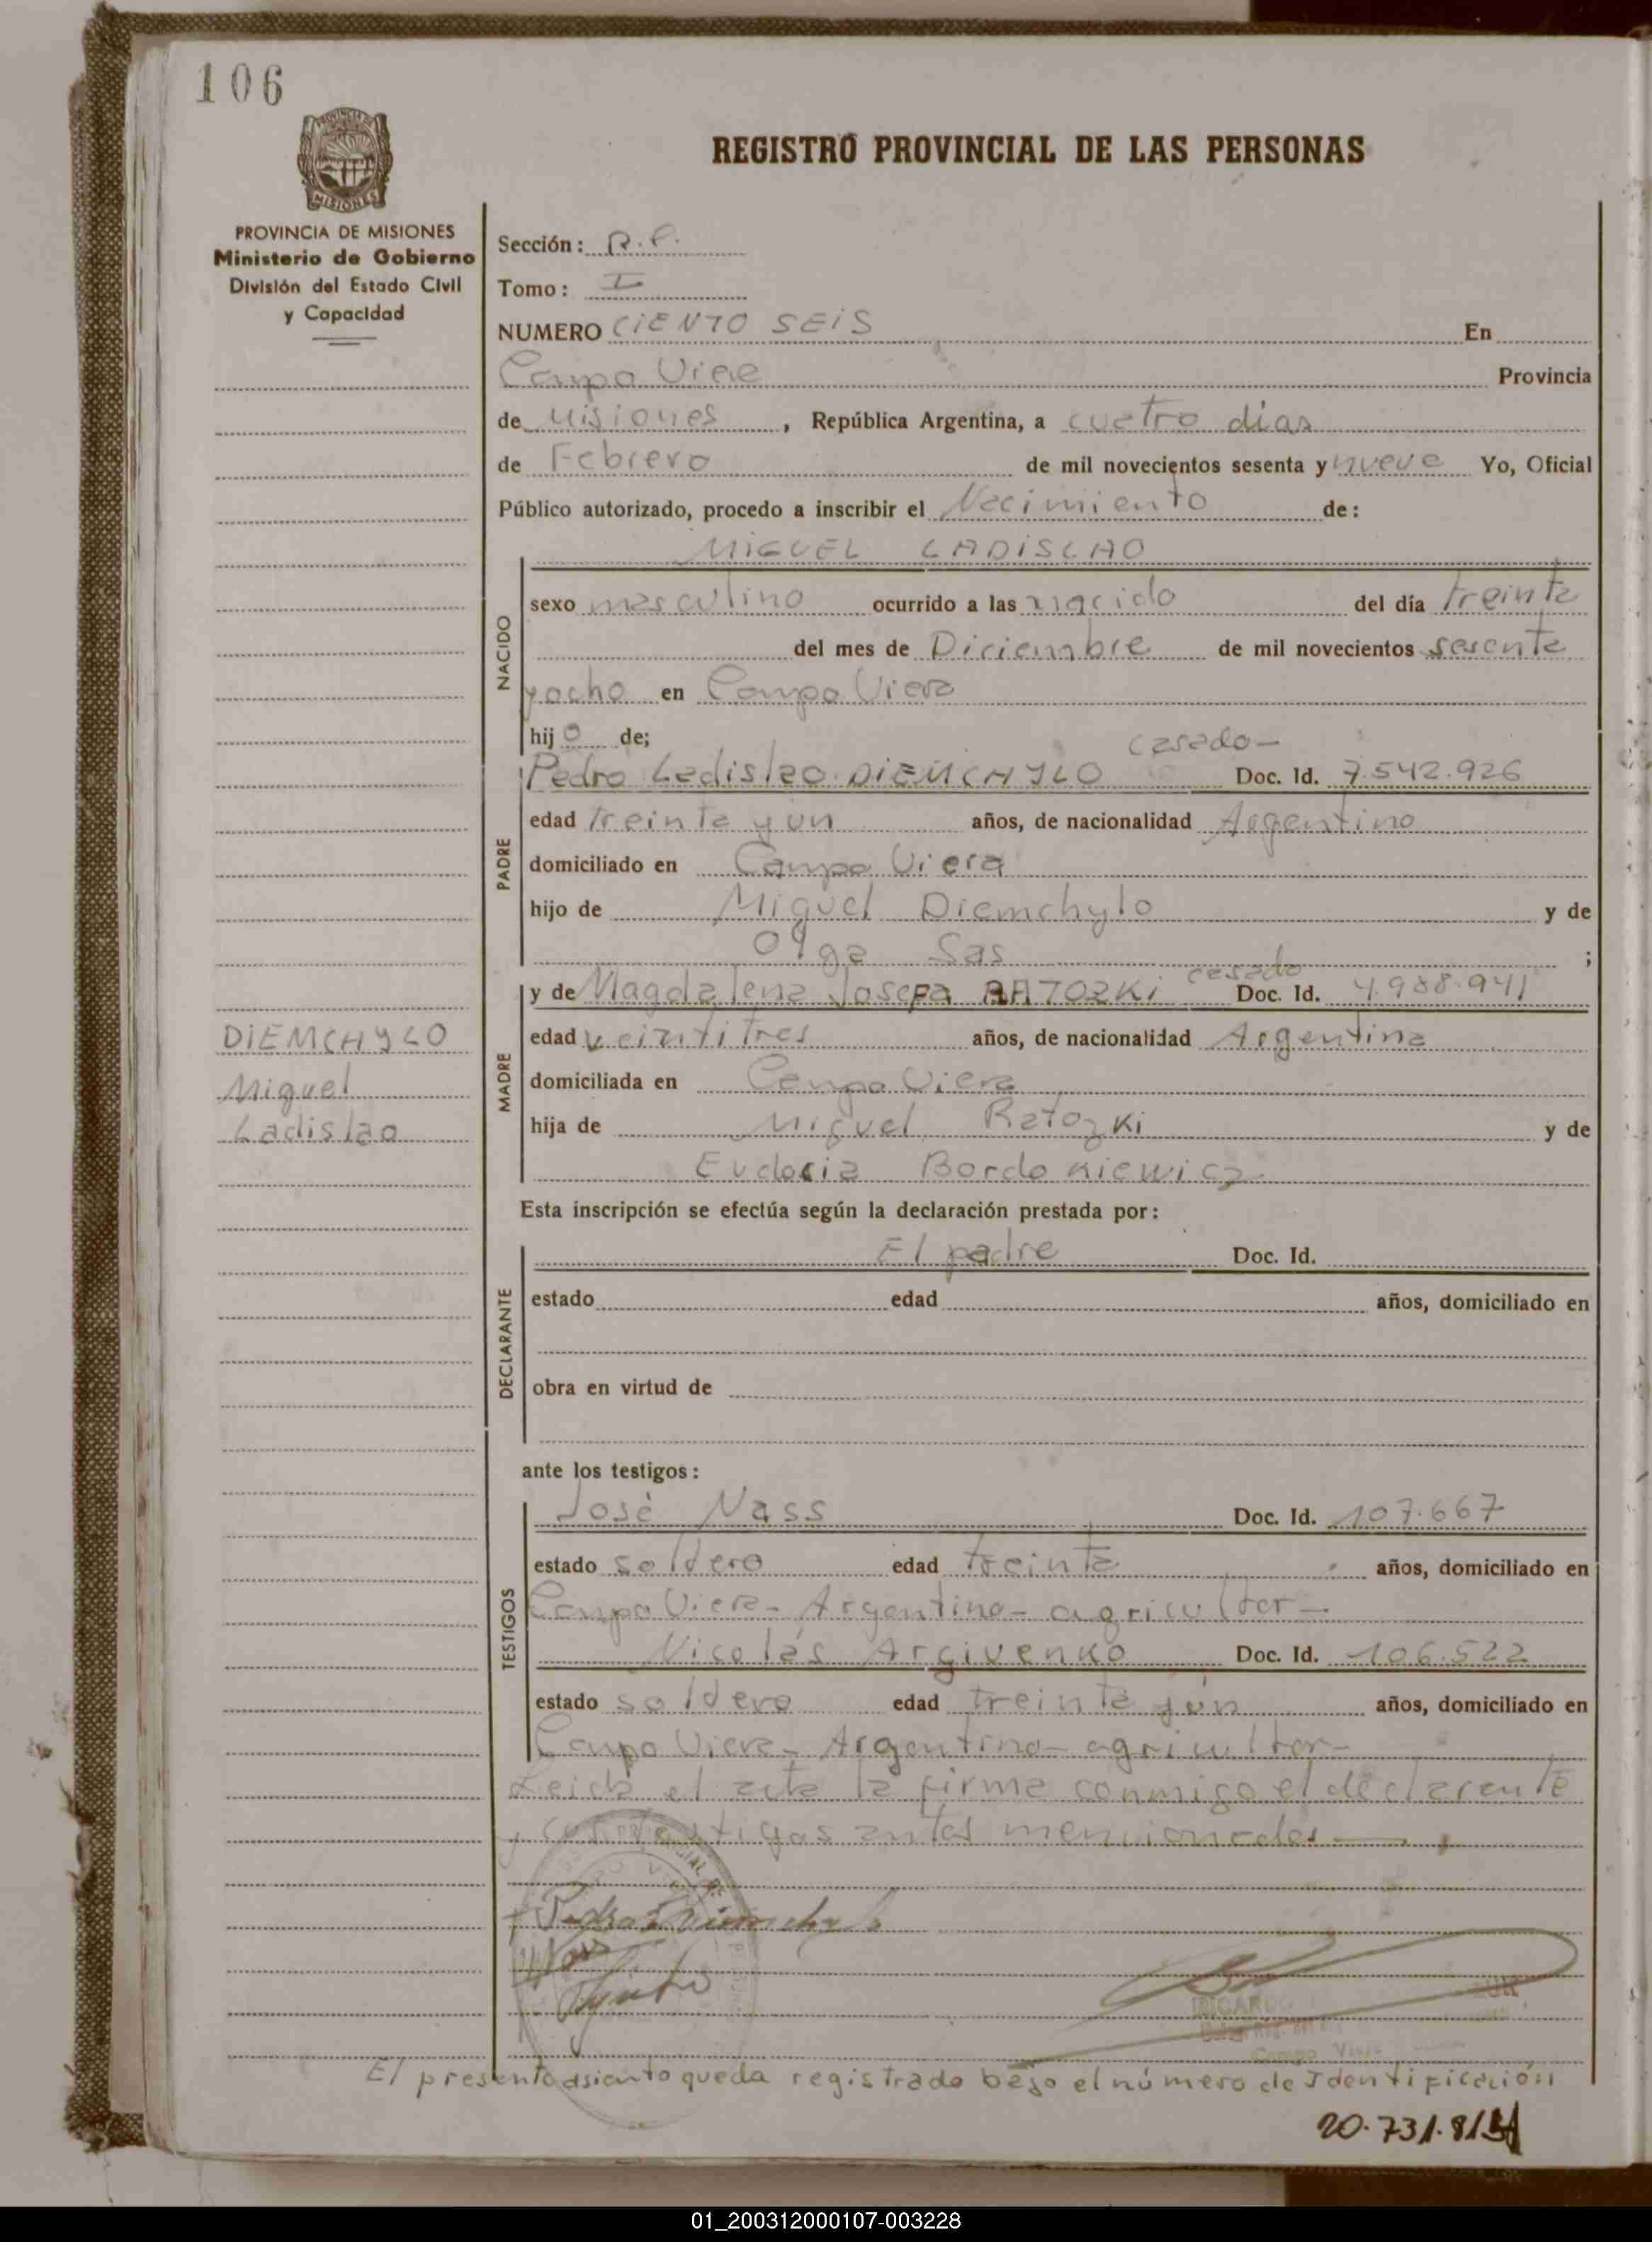 106
PROVINCIA DE MISIONES
Ministerio de Gobierno
División del Estado Civil
y Capacidad
REGISTRO PROVINCIAL DE LAS PERSONAS
Sección: R.P.
Tomo: I
NUMERO CIENTO SEIS En
Campo Viera Provincia
de Misiones, República Argentina, a cuatro dias
de Febrero de mil novecientos sesenta y nueve Yo, Oficial
Público autorizado, procedo a inscribir el Nacimiento de:
MIGUEL LADISLAO
NACIDO
sexo masculino ocurrido a las nacido del día treinta
del mes de Diciembre de mil novecientos sesenta
yocho en Campo Viera
hijo de;
casado-
PADRE
Pedro Ladislao DIEMCHYLO Doc. Id. 7.542.926
edad treinta y un años, de nacionalidad Argentino
domiciliado en Campo Viera
hijo de Miguel Diemchylo y de
Olga Sas ;
MADRE
casado
y de Magdalena Josefa RATOZKi Doc. Id. 4.988.941
edad veintitres años, de nacionalidad Argentina
domiciliada en Campo Viera
hija de Miguel Ratozki y de
Eudocia Bordokiewicz
DIEMCHYLO
Miguel
Ladislao
Esta inscripción se efectúa según la declaración prestada por:
DECLARANTE
El padre Doc. Id.
estado edad años, domiciliado en
obra en virtud de
ante los testigos:
TESTIGOS
José Nass Doc. Id. 107.667
estado soldero edad treinta años, domiciliado en
Campo Viera- Argentino- agricultor-
Nicolás Argivenko Doc. Id. 106.522
estado soldero edad treinta yún años, domiciliado en
Campo Viera- Argentino- agricultor-
Leida el acta la firma conmigo el declarante
y con testigos antes mencionados
Pedro L Diemchylo
RICARDO
Campo Viera
El presente asiento queda registrado bajo el número de Identificación
20.731.815
01_200312000107-003228